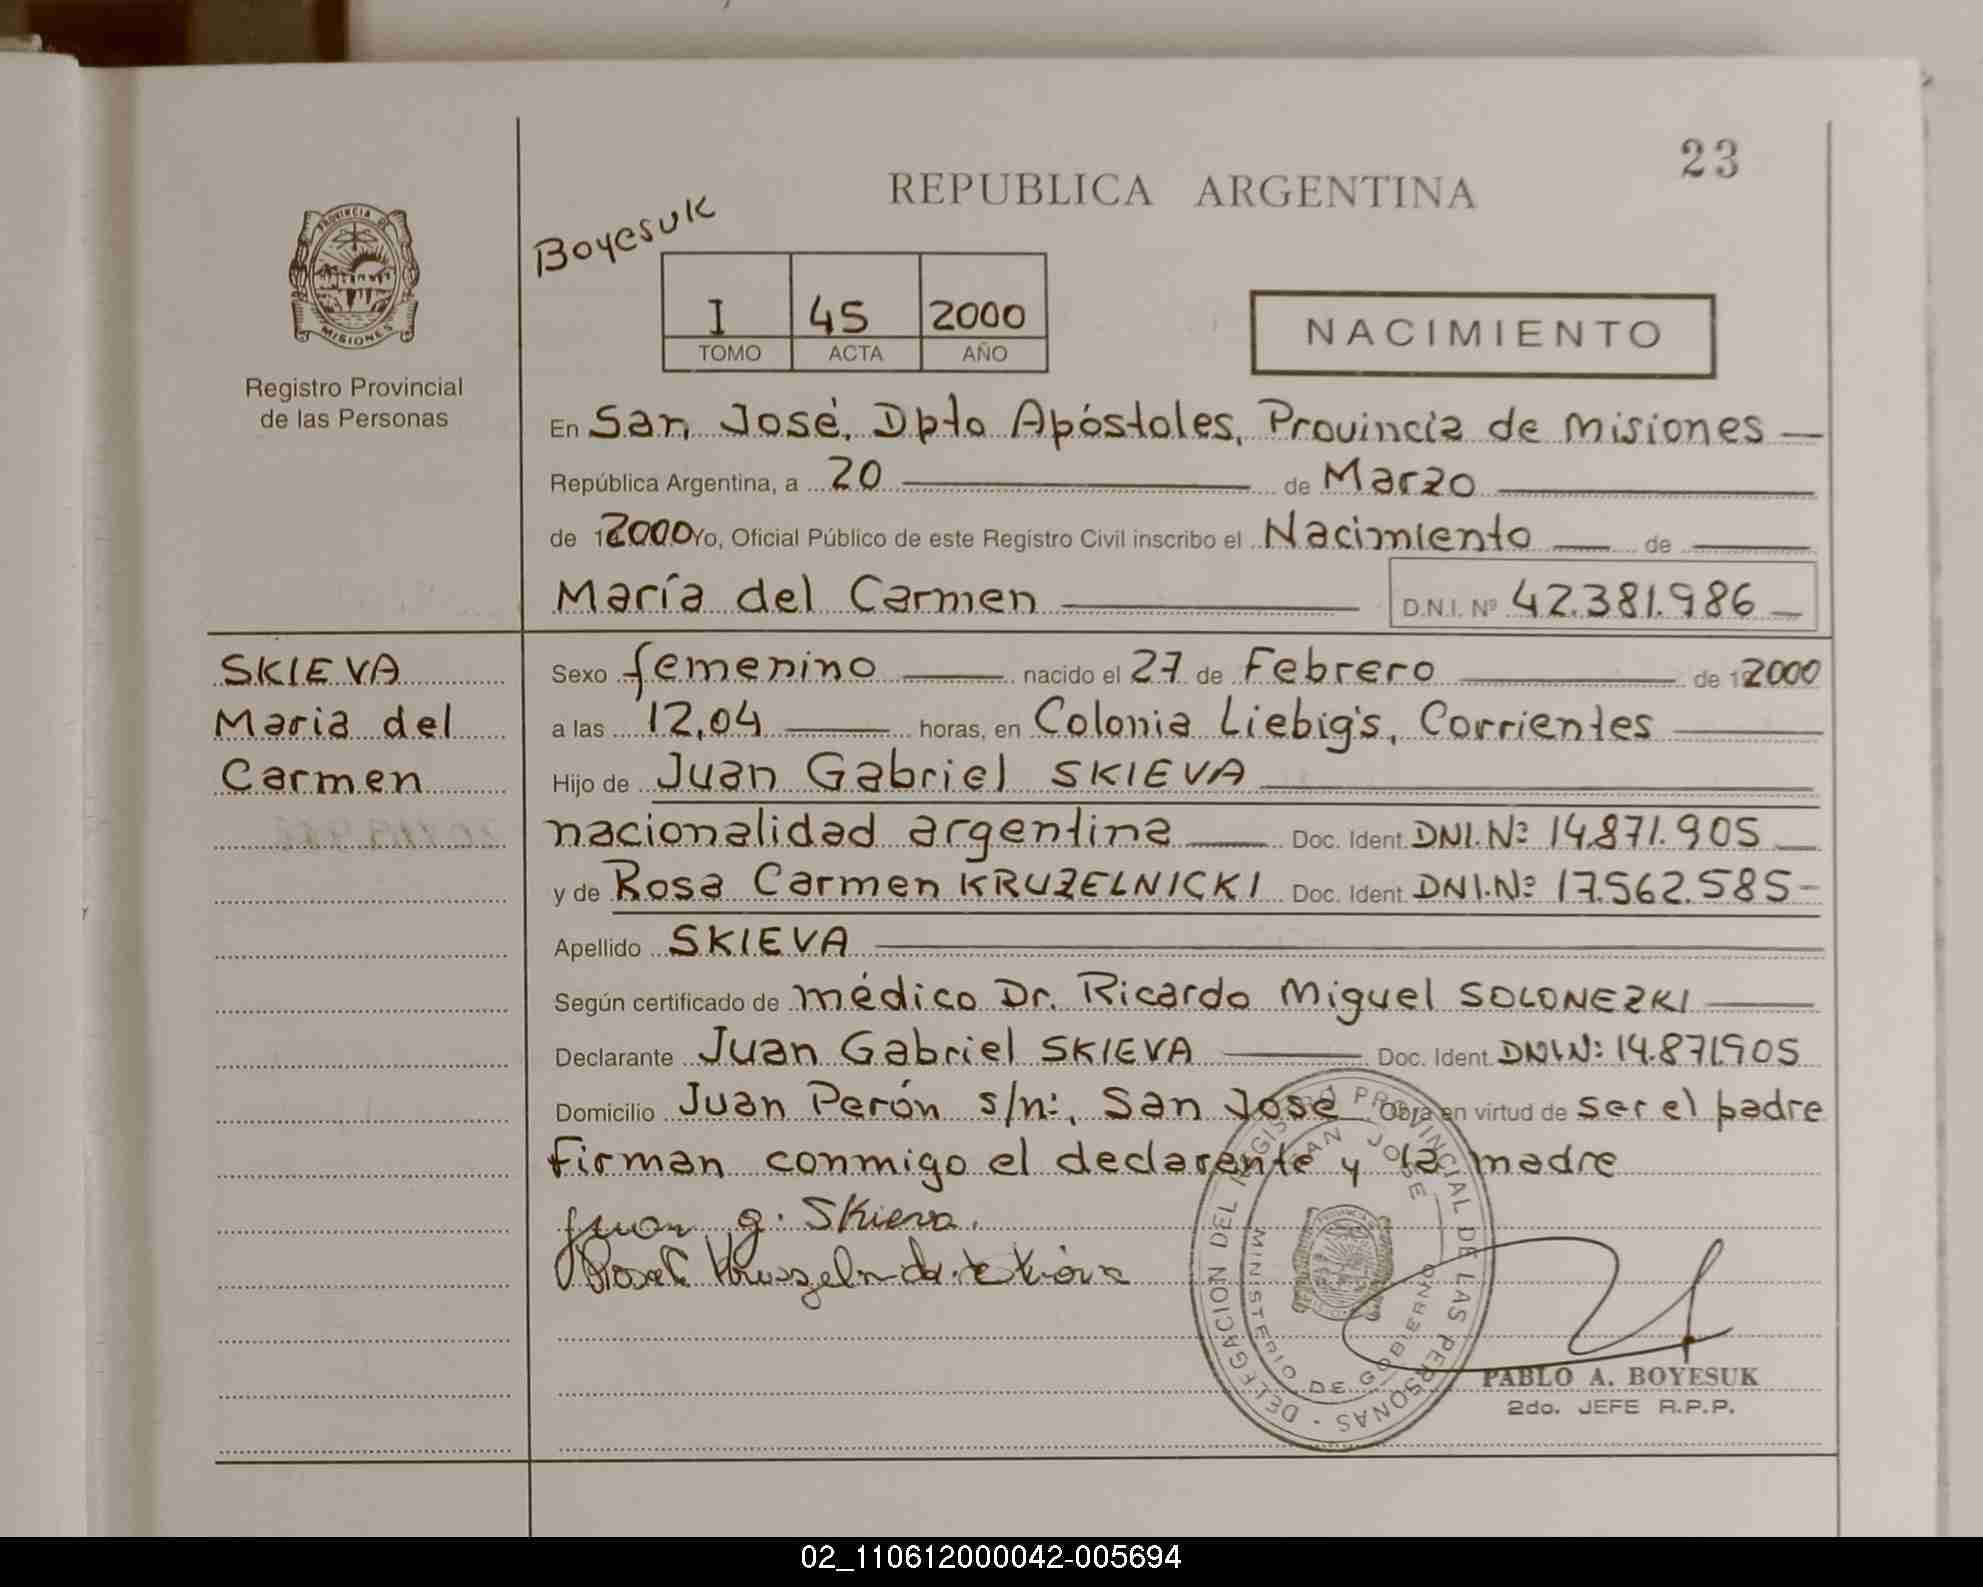 23
REPUBLICA ARGENTINA
Boyesuk
PROVINCIA DE
MISIONES
I 45 2000
TOMO ACTA AÑO
NACIMIENTO
Registro Provincial
de las Personas
En San José, Dpto Apóstoles, Provincia de Misiones
República Argentina, a 20 de Marzo
de 2000 Yo, Oficial Público de este Registro Civil inscribo el Nacimiento de
María del Carmen D.N.I. Nº 42.381.986
SKIEVA
Maria del
Carmen
Sexo femenino nacido el 27 de Febrero de 2000
a las 12,04 horas, en Colonia Liebig's, Corrientes
Hijo de Juan Gabriel SKIEVA
nacionalidad argentina Doc. Ident. DNI.Nº 14.871.905
y de Rosa Carmen KRUZELNICKI Doc. Ident. DNI.Nº 17.562.585
Apellido SKIEVA
Según certificado de médico Dr. Ricardo Miguel SOLONEZKI
Declarante Juan Gabriel SKIEVA Doc. Ident. DNI.Nº 14.871.905
Domicilio Juan Perón s/nº, San José Obra en virtud de ser el padre
Firman conmigo el declarante y la madre
Juan g. Skieva.
DELEGACION DEL REGISTRO PROVINCIAL DE LAS PERSONAS
SAN JOSE
MINISTERIO DE GOBIERNO
PABLO A. BOYESUK
2do. JEFE R.P.P.
02_110612000042-005694